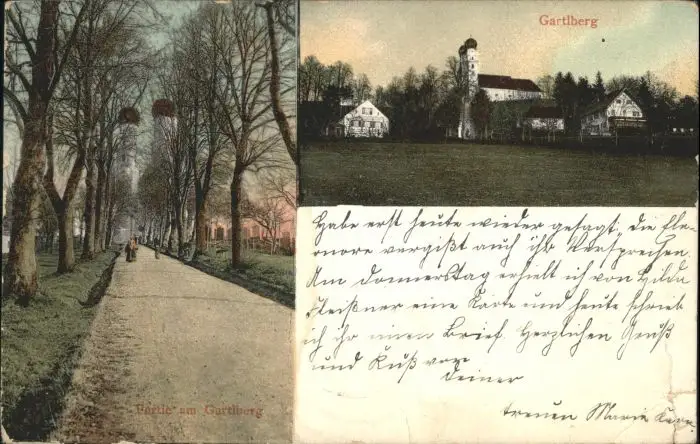 Gartlberg
Habe erst heute wieder gesagt, die Ele-
nore vergißt auch ihr Versprechen.
Am Donnerstag erhielt ich von Hilda
Fleißner eine Karte und heute schrieb
ich ihr einen Brief. Herzlichen Gruß
und Kuß von
Deiner
treuen Marie
Partie am Gartlberg